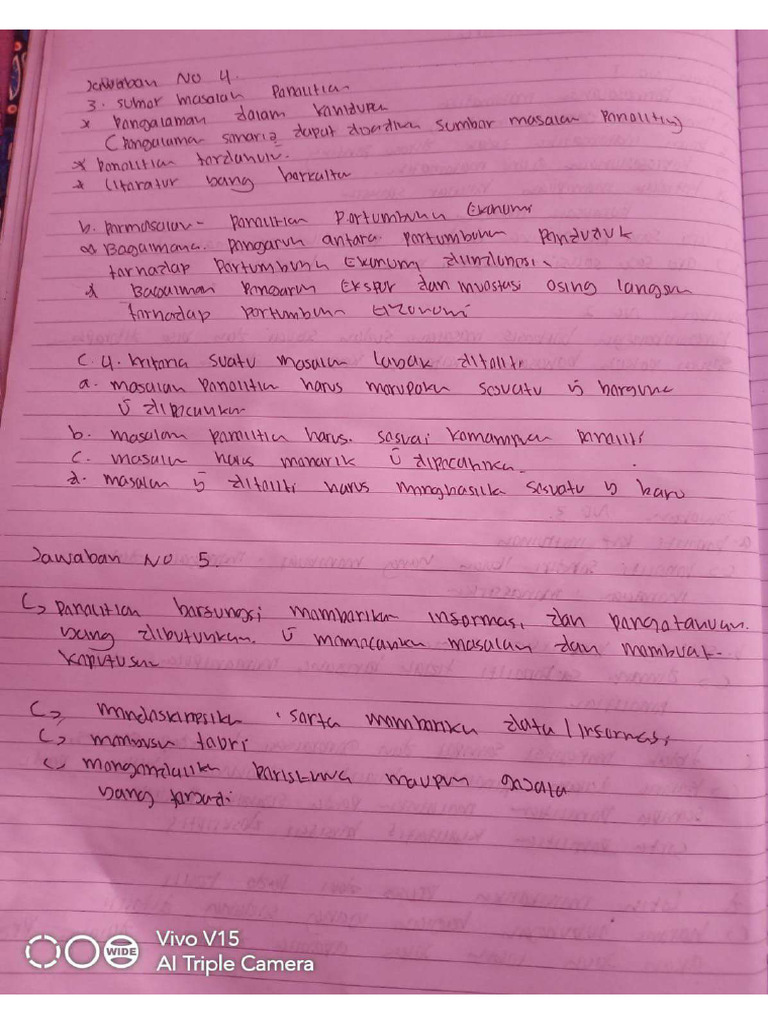 Jawaban No 4.
3. sumor masalah Panalitian
* Pangalaman dalam kanidupan
(Pangalaman dapat sumbar masalan Panalitin)
* Panalitian tardanulu.
* Litaratur yang barkaitu
b. Parmasalan - Panalitian Partumbuhn Ekonomi
Bagaimana. Pangarun antara Partumbuhn Panduduk
tarhadap Partumbuhn Ekonom
Bagaiman Pangarun Ekspor dan invastasi asing langsun
tarhadap partumbuhn Ekonomi
C. 4. kritaria suatu masalan layak ditaliti
a. masalan Panalitin harus marupaku sasuatu yg barguna
U dipacahkn
b. masalan Panalitin harus. sasuai kamampuan Panaliti
c. masaln harus manarik U dipacahka.
d. masalan yg ditaliti harus manghasilk sasuatu yg baru
Jawaban No 5.
Panalitian barfungsi mambarikn informasi, dan pangatahuan.
yang dibutuhkan. U mamacahkn masalan dan mambuat-
kaputusn
mandaskripsikn sarta mambarikn data / informasi
manyusn taori
barisitiwa maupun gajala
yang tarjadi
Vivo V15
WIDE
AI Triple Camera